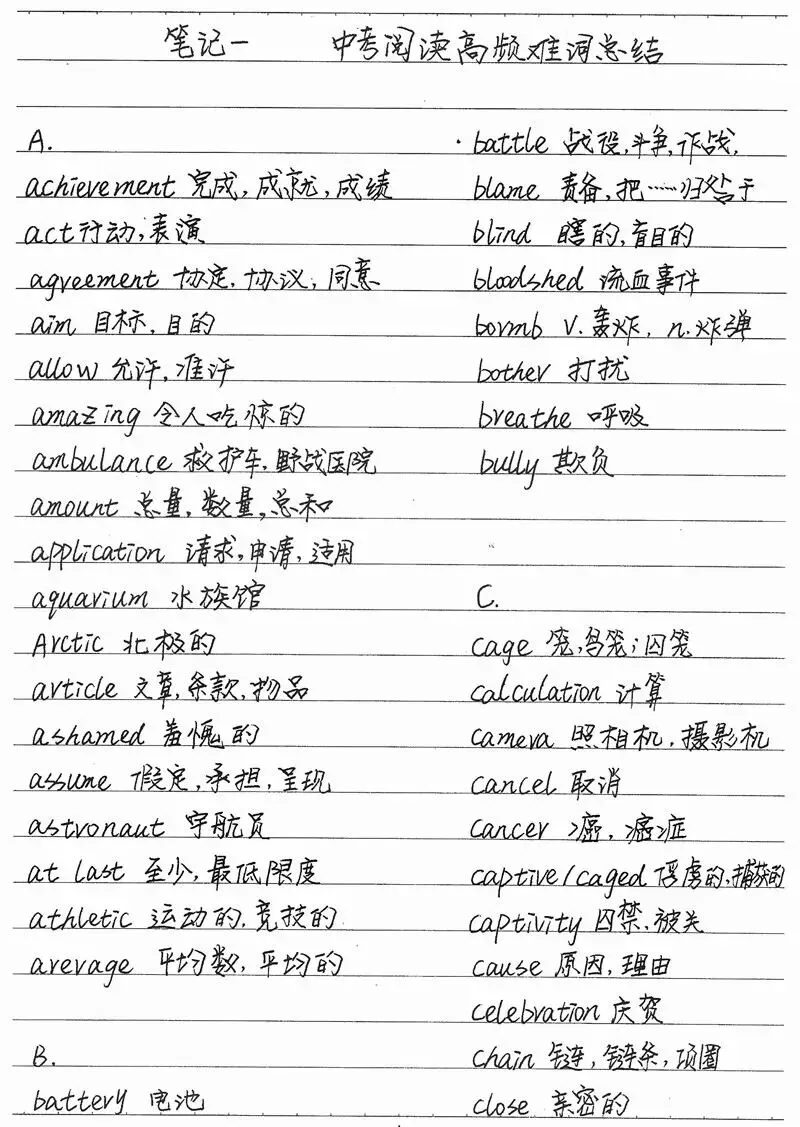 笔记一 中考阅读高频难词总结
A.
achievement 完成,成就,成绩
act 行动,表演
agreement 协定,协议,同意
aim 目标,目的
allow 允许,准许
amazing 令人吃惊的
ambulance 救护车,野战医院
amount 总量,数量,总和
application 请求,申请,适用
aquarium 水族馆
Arctic 北极的
article 文章,条款,物品
ashamed 羞愧的
assume 假定,承担,呈现
astronaut 宇航员
at last 至少,最低限度
athletic 运动的,竞技的
average 平均数,平均的
B.
battery 电池
·battle 战役,斗争,作战,
blame 责备,把……归咎于
blind 瞎的,盲目的
bloodshed 流血事件
bomb v.轰炸, n.炸弹
bother 打扰
breathe 呼吸
bully 欺负
C.
cage 笼,鸟笼;囚笼
calculation 计算
camera 照相机,摄影机
cancel 取消
cancer 癌,癌症
captive/caged 俘虏的,捕获的
captivity 囚禁,被关
cause 原因,理由
celebration 庆贺
chain 链,链条,项圈
close 亲密的